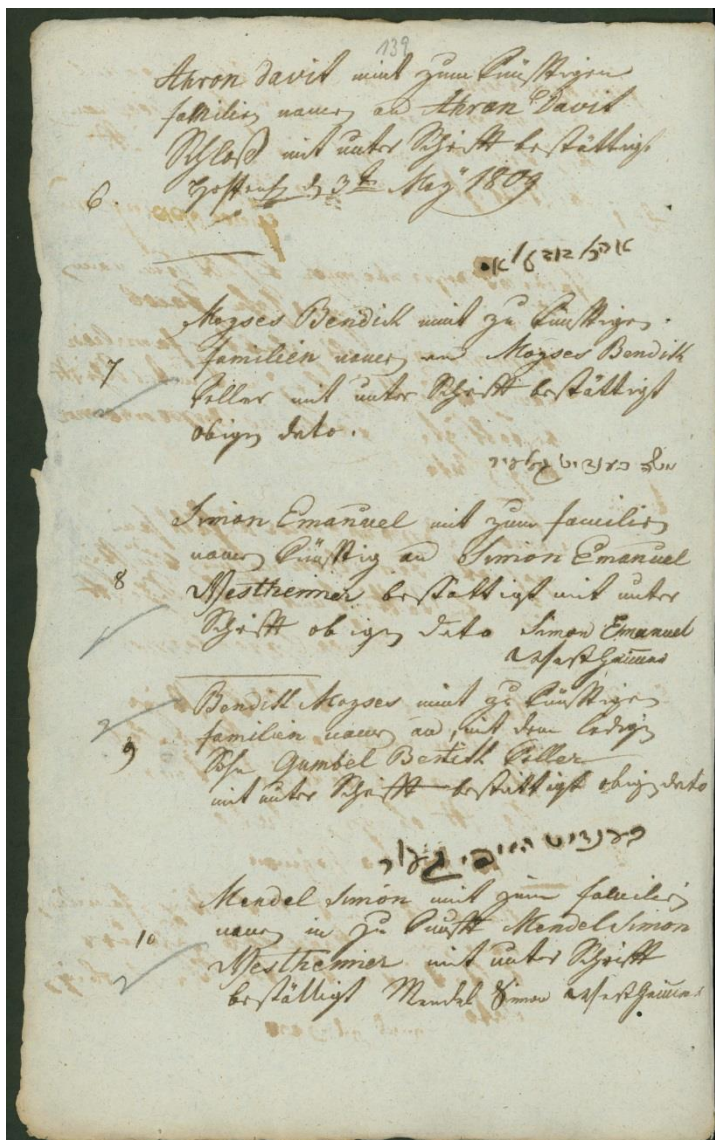 139
Ahron Davit nimt zum künfftigen
familien namen an Ahron Davit
Schloß mit unter Schrifft bestättigt
6. den 3ten May 1809
Moyses Bendick nimt zu künfftigen
7 familien namen an Moyses Bendick
mit unter Schrifft bestättigt
obigen dato.
Simon Emanuel nimt zum familien
namen künfftig an Simon Emanuel
8 Westheimer bestättigt mit unter
Schrifft obigen dato Simon Emanuel
Westheimer
Bendick Moyses nimt zu künfftigen
familien namen an, mit dem ledigen
9 Sohn Gumbel Bendick
mit unter Schrifft bestättigt obigen dato
Mendel Simon nimt zum familien
10 namen an zu künfft Mendel Simon
Westheimer mit unter Schrifft
bestättigt Mendel Simon Westheimer